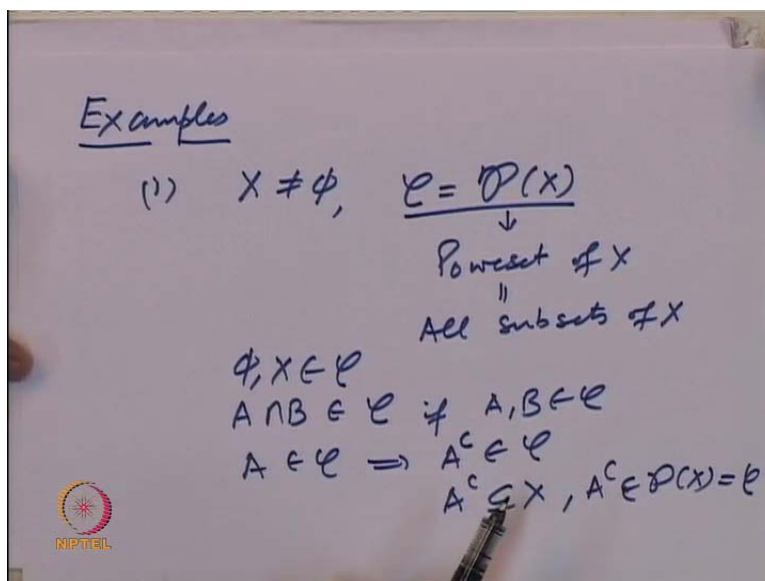 Examples
(1) X ≠ ϕ, 𝒞 = 𝒫(X)
↓
Poweset of X
॥
All subsets of X
ϕ, X ∈ 𝒞
A ∩ B ∈ 𝒞 if A, B ∈ 𝒞
A ∈ 𝒞 ⇒ A^C ∈ 𝒞
A^C ⊆ X, A^C ∈ 𝒫(X) = 𝒞
NPTEL